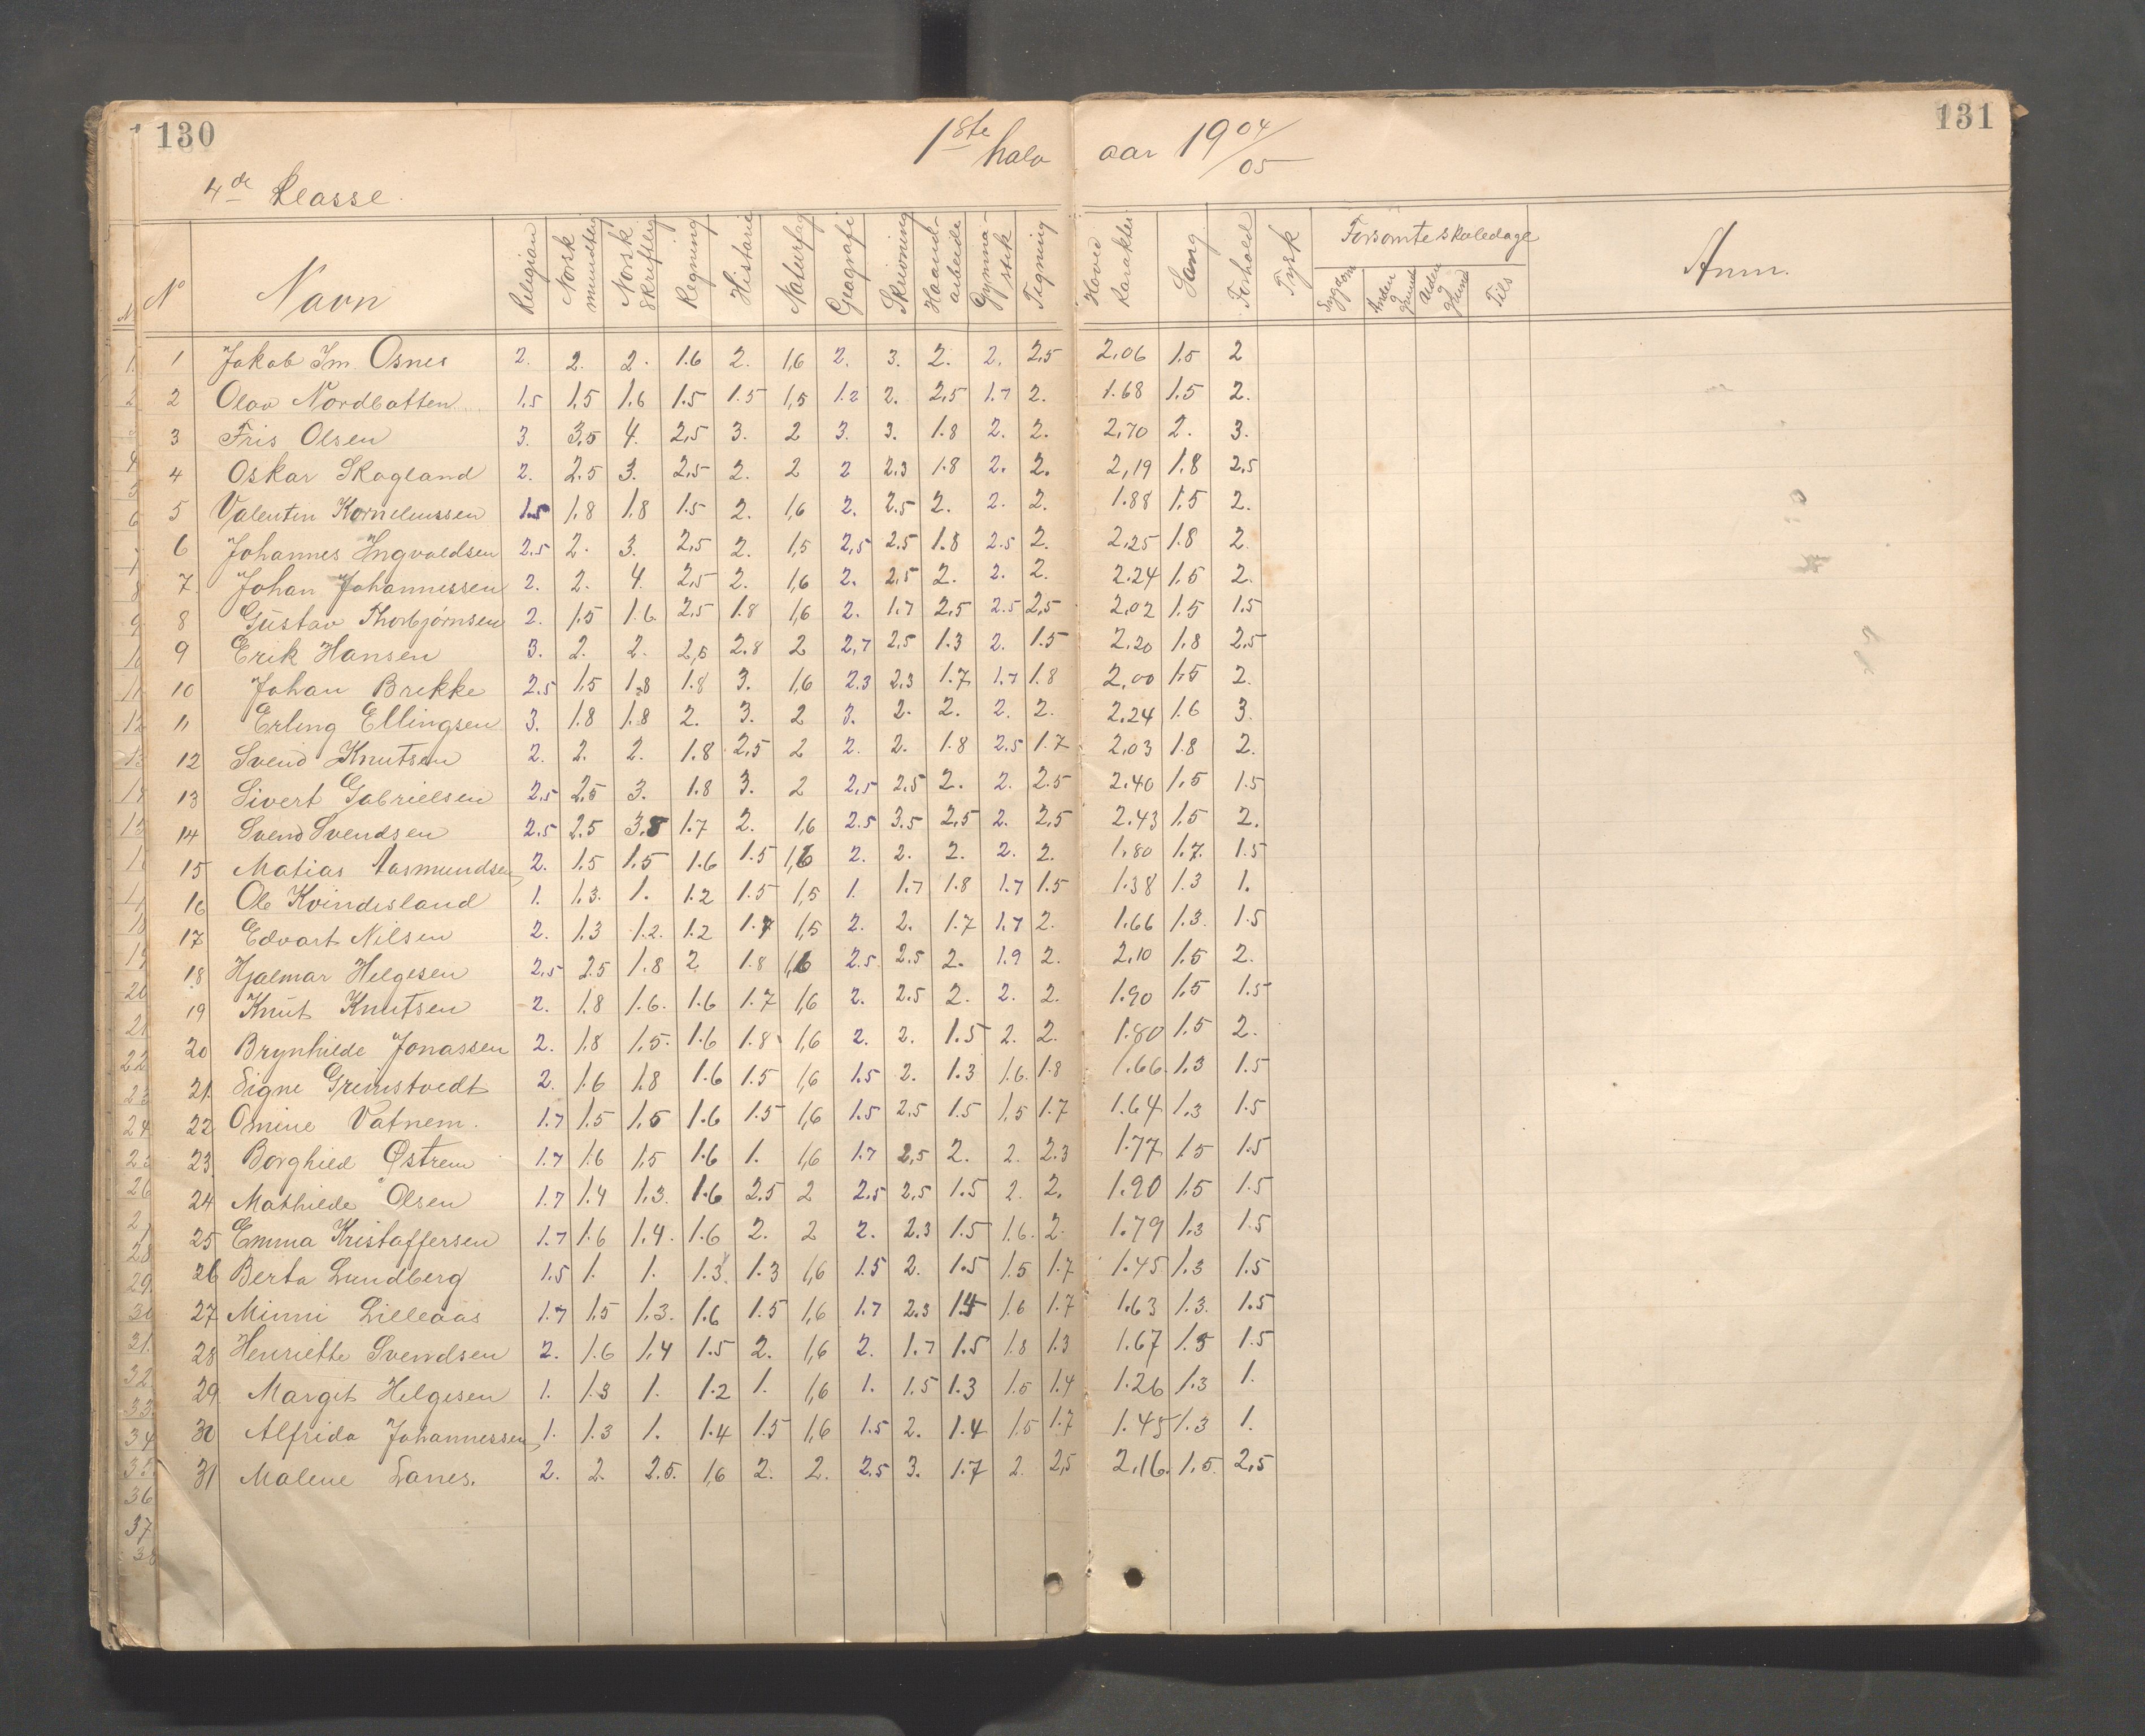 130
1ste halv
aar 1904/05
131
4de Klasse.
N Navn Religion Norsk mundtlig Norsk Skriftlig Regning Historie Naturfag Geografi Skrivning Haandarbeide Gymnastik Tegning Hoved Karakter Sang Forhold Tysk Forsømte skoledage Anm.
Sygdom Anden grund Uden grund Tils
1 Jakob Im. Osnes 2. 2. 2. 1.6 2. 1,6 2. 3. 2. 2. 2,5 2,06 1.5 2
2 Olav Nordbotten 1,5 1,5 1.6 1.5 1.5 1,5 1.2 2. 2,5 1.7 2. 1.68 1.5 2.
3 Fris Olsen 3. 3,5 4. 2,5 3. 2 3. 3. 1.8 2. 2. 2,70 2. 3.
4 Oskar Skogland 2. 2.5 3. 2,5 2. 2 2 2.3 1.8 2. 2. 2,19 1.8 2,5
5 Valentin Korneliussen 1.5 1,8 1,8 1.5 2. 1,6 2. 2.5 2. 2. 2. 1.88 1.5 2.
6 Johannes Ingvaldsen 2.5 2. 3. 2,5 2. 1,5 2,5 2.5 1.8 2.5 2. 2,25 1.8 2.
7. Johan Johannessen 2. 2. 4. 2,5 2. 1,6 2. 2,5 2. 2. 2. 2.24 1.5 2.
8 Gustav Thorbjørnsen 2. 1,5 1.6. 2.5 1.8 1,6 2. 1.7 2.5 2.5 2,5 2,02 1.5 1.5
9 Erik Hansen 3. 2. 2. 2,5 2.8 2 2,7 2,5 1.3 2. 1.5 2.20 1.8 2,5
10 Johan Brekke 2.5 1,5 1,8 1.8 3. 1,6 2.3 2,3 1.7 1.7 1.8 2,00 1.5 2.
11 Erling Ellingsen 3. 1.8 1.8 2. 3. 2 3. 2. 2. 2. 2. 2,24 1.6 3.
12 Svend Knutsen 2. 2. 2. 1.8 2,5 2 2. 2. 1.8 2.5 1.7 2,03 1.8 2.
13 Sivert Gabrielsen 2,5 2,5 3. 1.8 3. 2 2,5 2,5 2. 2. 2.5 2.40 1,5 1.5
14 Svend Svendsen 2.5 2.5 3,8 1.7 2. 1,6 2.5 3.5 2,5 2. 2,5 2.43 1.5 2.
15 Matias Aasmundsen 2. 1.5 1.5 1.6 1.5 1,6 2. 2. 2. 2. 2. 1.80 1.7. 1.5
16 Ole Kvindesland 1. 1.3. 1. 1.2 1.5 1,5 1. 1.7 1.8 1.7 1.5 1.38 1.3 1.
17 Edvart Nilsen 2. 1.3 1.2. 1.2 1.7 1,5 2. 2. 1.7 1.7 2. 1.66 1.3. 1.5
18 Hjalmar Helgesen 2,5 2.5 1.8 2 1.8 1,6 2.5 2.5 2. 1.9 2. 2,10 1.5 2.
19 Knut Knutsen 2. 1.8 1.6. 1.6 1.7 1,6 2. 2.5 2. 2. 2. 1.90 1.5 1.5
20 Brynhilde Jonassen 2. 1.8 1.5. 1.6 1.8 1,6 2. 2. 1.5 2. 2. 1.80 1.5 2.
21 Signe Grimstvedt 2. 1.6 1.8 1.6 1.5 1,6 1.5 2. 1.3 1.6. 1.8 1.66. 1.3 1.5
22 Omine Vatnem. 1.7 1.5 1.5 1.6 1.5 1,6 1.5 2.5 1.5 1.5 1.7 1.64 1.3 1.5
23 Borghild Østrem 1.7 1.6 1,5 1.6 1. 1,6 1.7 2,5 2. 2. 2.3 1.77 1.5 1.5
24 Mathilde Olsen 1.7 1.4 1.3. 1.6 2.5 2 2.5 2,5 1.5 2. 2. 1.90 1.5 1.5
25 Emma Kristoffersen 1.7 1.6 1.4. 1.6 2. 2 2. 2.3 1.5 1.6. 2. 1.79 1.3 1.5
26 Berta Lundberg 1.5 1. 1. 1.3. 1.3 1,6 1.5 2. 1.5 1.5 1.7 1.45 1.3 1.5
27 Minni Lilleaas 1.7 1.5 1.3. 1.6 1.5 1,6 1.7 2.3 1.5 1.6 1.7 1.63 1.3. 1.5
28 Henriette Svendsen 2. 1.6 1.4 1.5 2. 1,6 2. 1.7 1.5 1.8 1.3 1.67 1.5 1.5
29 Margit Helgesen 1. 1.3 1. 1.2 1. 1,6 1. 1.5 1.3 1.5 1.4 1.26 1.3 1.
30 Alfrida Johannessen 1. 1.3 1. 1.4 1.5 1,6 1.5 2. 1.4 1.5 1.7 1.45 1.3 1.
31 Malene Lanes. 2. 2. 2.5. 1,6 2. 2. 2.5 3. 1.7 2. 2,5 2,16. 1,5. 2,5